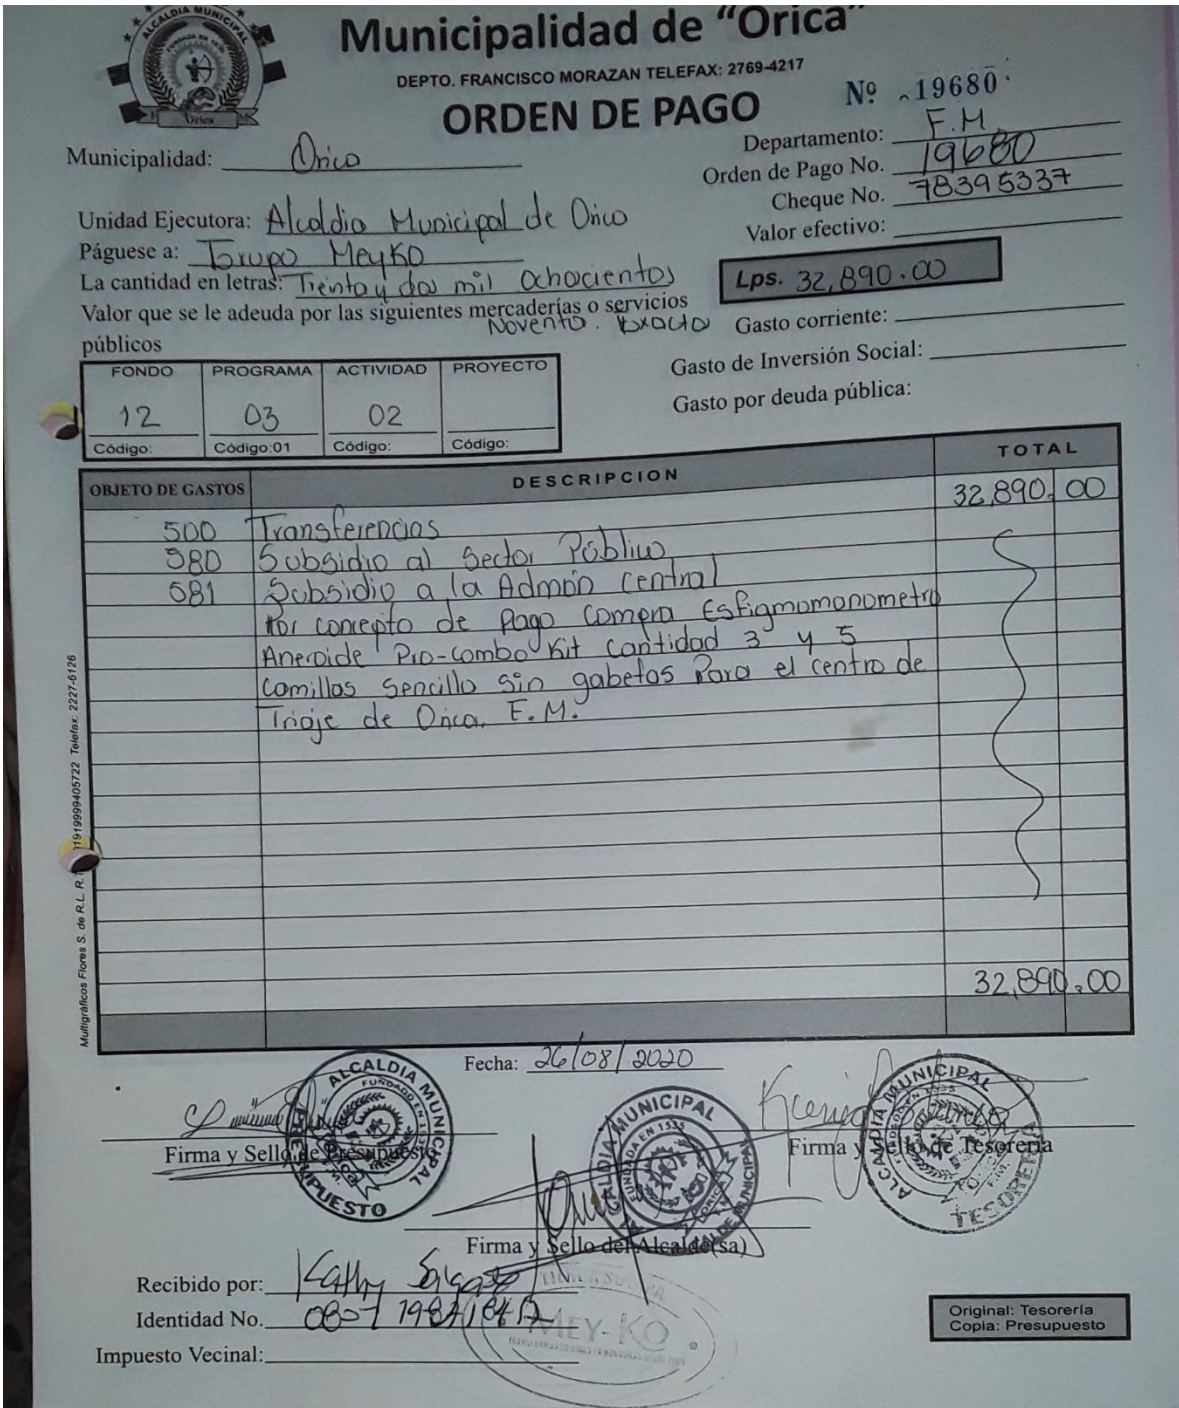 Municipalidad de "Orica"
DEPTO. FRANCISCO MORAZAN TELEFAX: 2769-4217
ORDEN DE PAGO
Nº 19680
ALCALDIA MUNICIPAL
FUNDADA EN 1535
Orica
Municipalidad: Orica
Departamento: F.M.
Orden de Pago No. 19680
Cheque No. 78395337
Valor efectivo:
Unidad Ejecutora: Alcaldia Municipal de Orica
Páguese a: Grupo MeyKO
La cantidad en letras: Treinta y dos mil Ochocientos
Lps. 32,890.00
Valor que se le adeuda por las siguientes mercaderías o servicios
Noventa. Exacta
públicos
Gasto corriente:
Gasto de Inversión Social:
Gasto por deuda pública:
FONDO PROGRAMA ACTIVIDAD PROYECTO
12 03 02
Código: Código:01 Código: Código:
OBJETO DE GASTOS DESCRIPCION TOTAL
32,890.00
500 Transferencias
580 Subsidio al Sector Público
581 Subsidio a la Admón Central
Por concepto de Pago Compra Esfigmomonometro
Aneroide Pro-Combo Kit Cantidad 3 y 5
Camillas Sencilla Sin gabetas Para el centro de
Triaje de Orica. F.M.
32,890.00
Multigráficos Flores S. de R.L. R. 1919999405722 Telefax: 2227-6126
Fecha: 26/08/2020
Firma y Sello de Presupuesto
ALCALDIA MUNICIPAL
PRESUPUESTO
Firma y Sello de Tesorería
ALCALDIA MUNICIPAL
TESORERIA
Firma y Sello del Alcalde(sa)
ALCALDIA MUNICIPAL
FUNDADA EN 1535
Recibido por: Kathy
Identidad No. 0807
Impuesto Vecinal:
MEY-KO
Original: Tesorería
Copia: Presupuesto